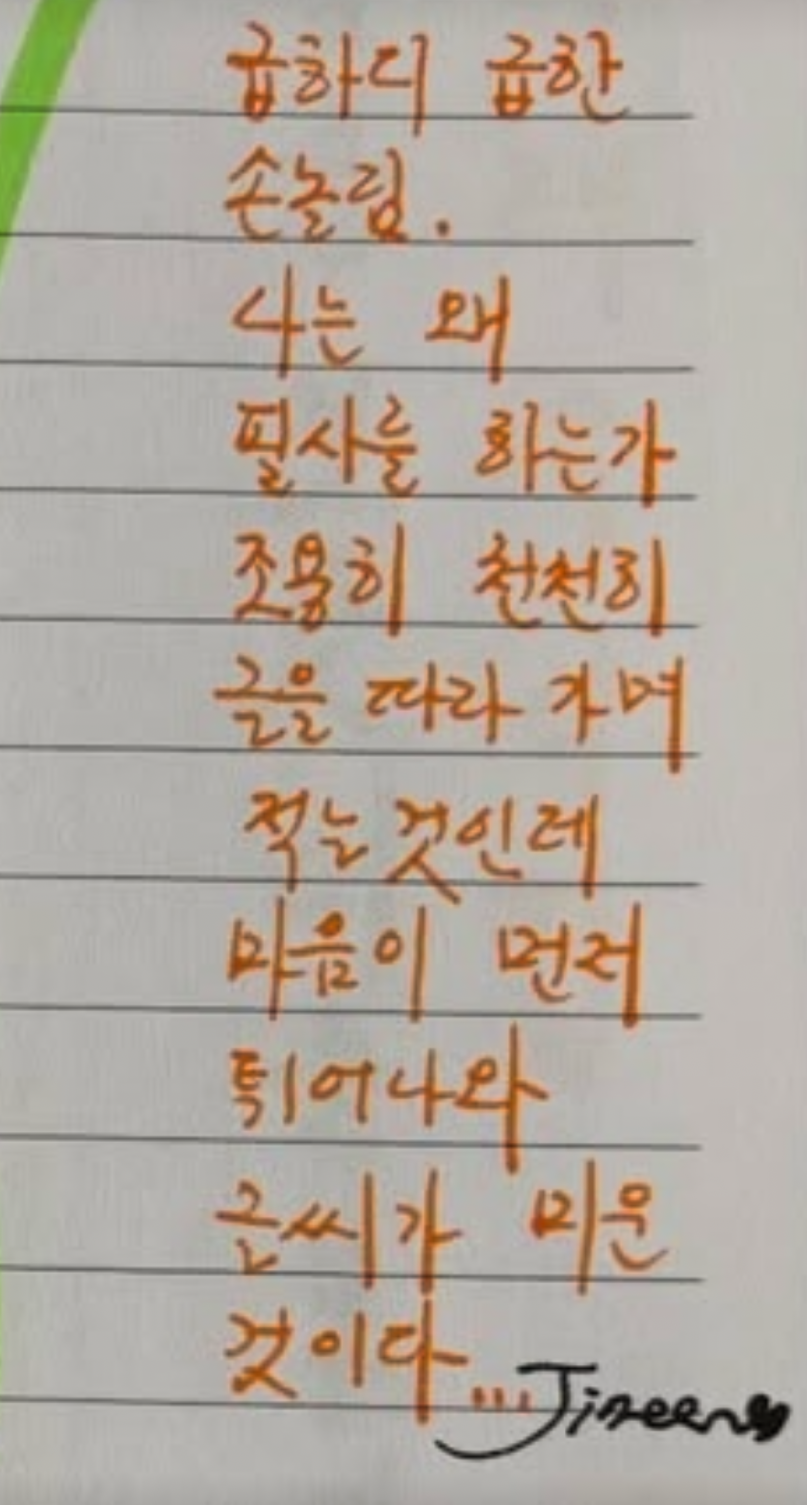 급하디 급한
손놀림.
나는 왜
필사를 하는가
조용히 천천히
글을 따라 가며
적는것인데
마음이 먼저
튀어나와
글씨가 미운
것이다...
Jineen